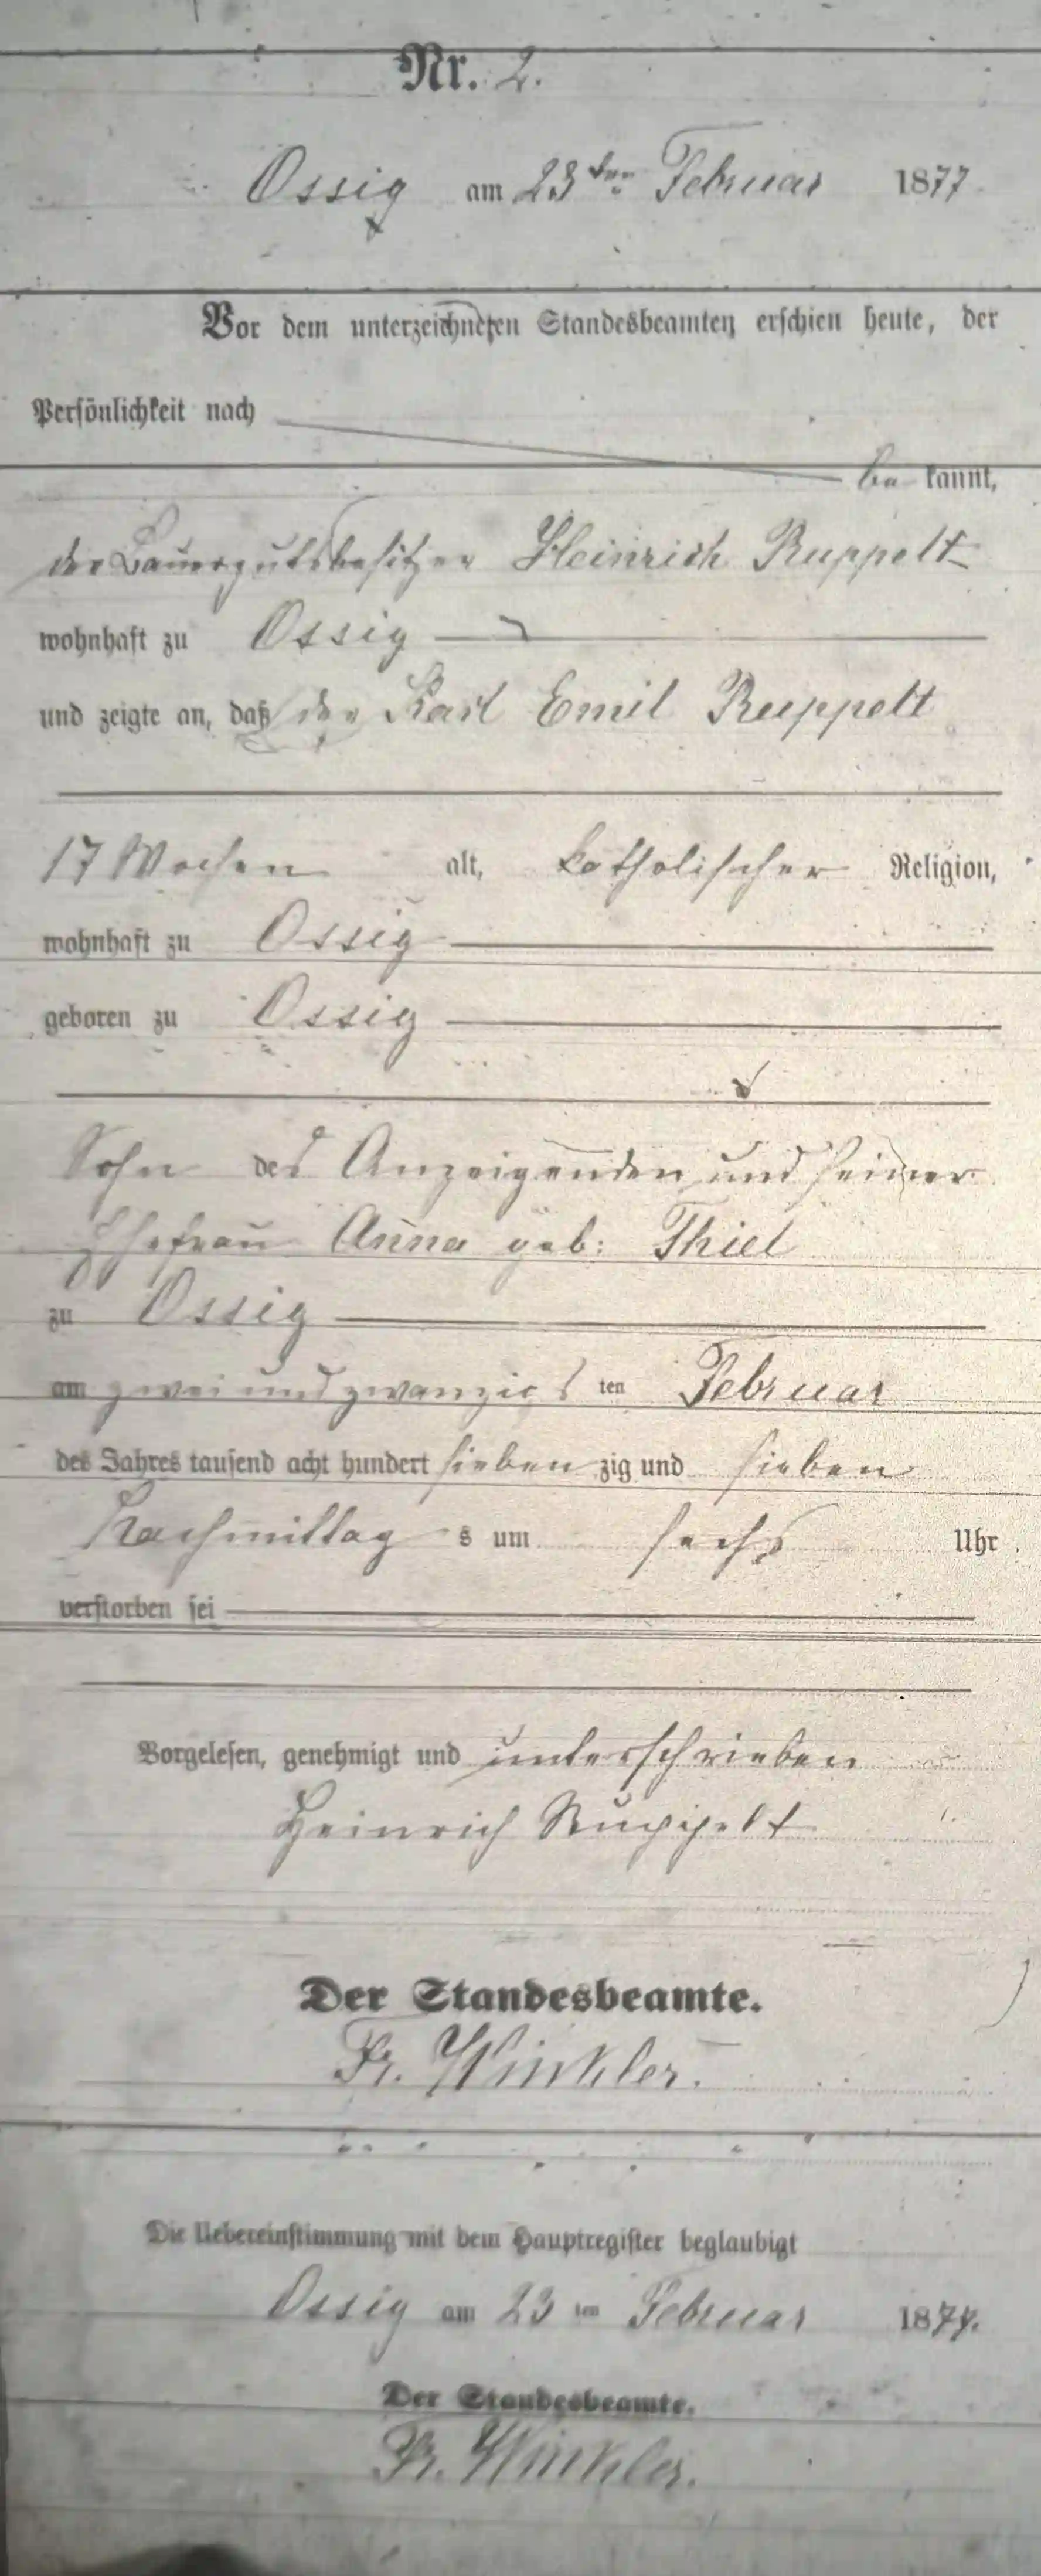 Nr. 2.
Ossig am 23ten Februar 1877
Vor dem unterzeichneten Standesbeamten erschien heute, der
Persönlichkeit nach
be kannt,
der Bauergutsbesitzer Heinrich Ruppelt
wohnhaft zu Ossig
und zeigte an, daß der Karl Emil Ruppelt
17 Wochen alt, katholischer Religion,
wohnhaft zu Ossig
geboren zu Ossig
Sohn des Anzeigenden und seiner
Ehefrau Anna geb: Thiel
zu Ossig
am zwei und zwanzigsten Februar
des Jahres tausend acht hundert sieben zig und sieben
Nachmittag s um sechs Uhr
verstorben sei
Vorgelesen, genehmigt und unterschrieben
Heinrich Ruppelt
Der Standesbeamte.
Fr. Winkler.
Die Uebereinstimmung mit dem Hauptregister beglaubigt
Ossig am 23 ten Februar 1877.
Der Standesbeamte.
Fr. Winkler.